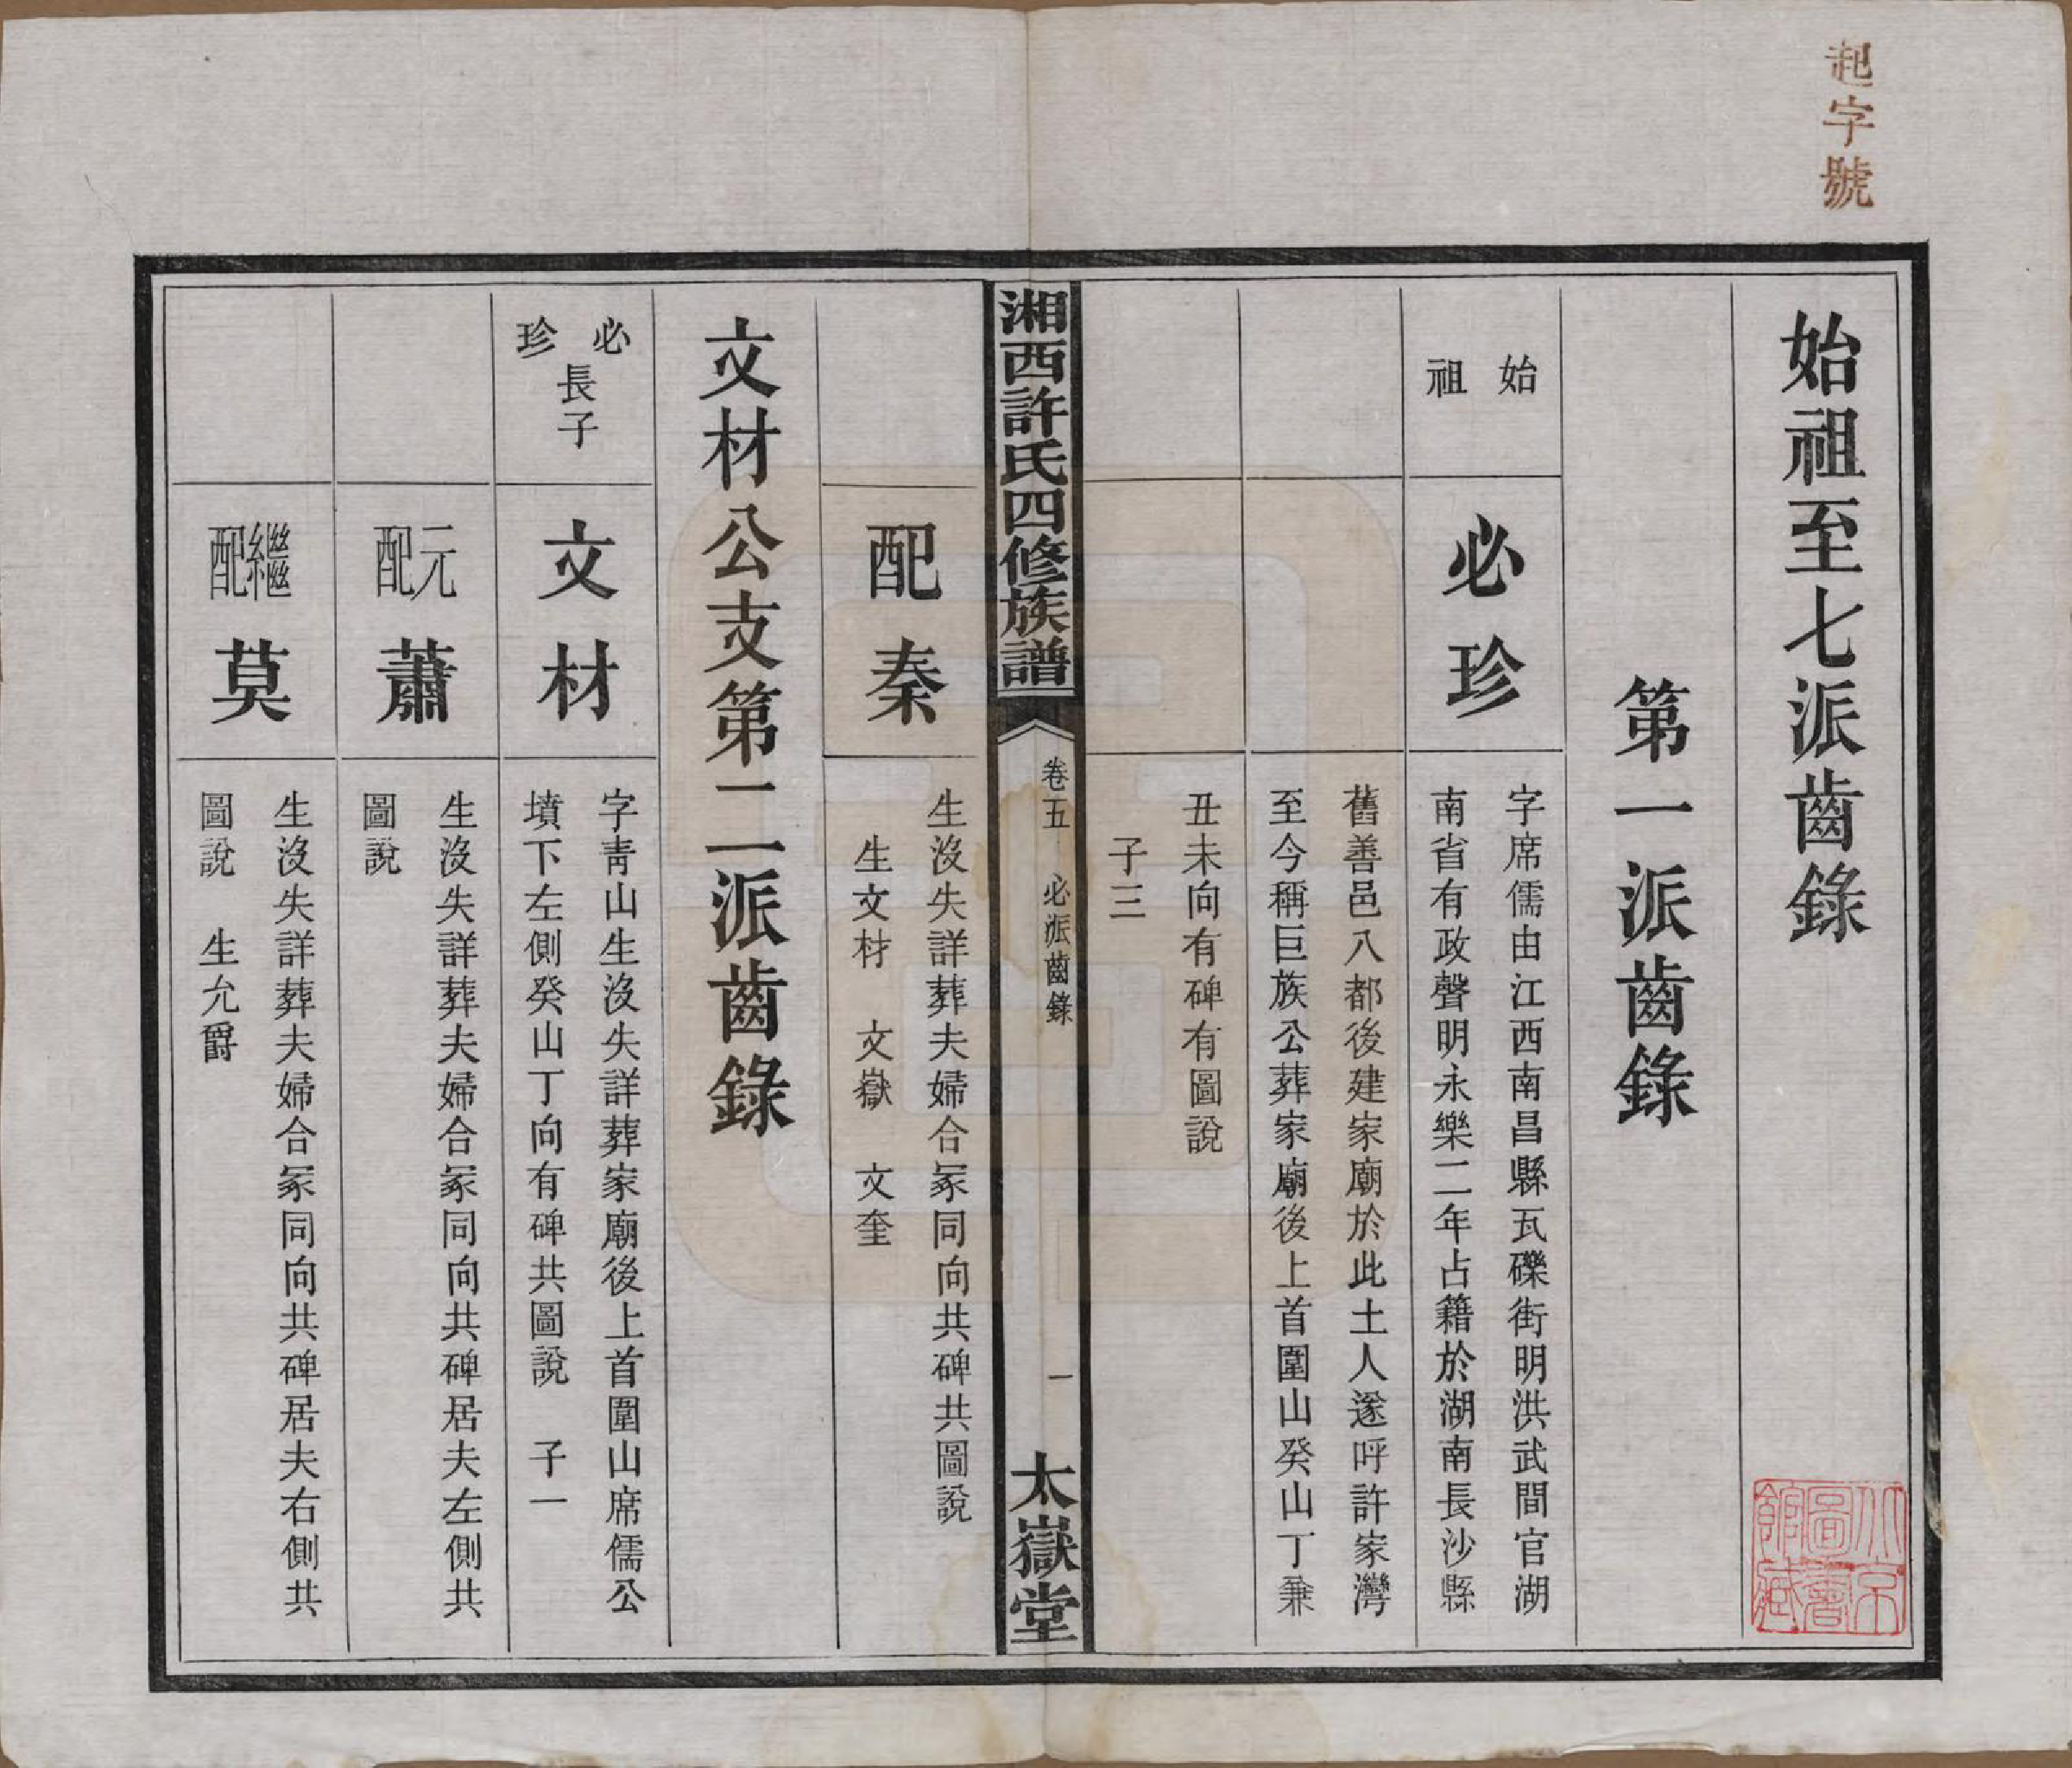 起字號
始祖至七派齒錄
第一派齒錄
始祖
必珍
字席儒由江西南昌縣瓦礫街明洪武間官湖
南省有政聲明永樂二年占籍於湖南長沙縣
舊善邑八都後建家廟於此土人遂呼許家灣
至今稱巨族公葬家廟後上首圍山癸山丁兼
丑未向有碑有圖說
子三
湘西許氏四修族譜
卷五 必派齒錄
一
太嶽堂
配秦
生沒失詳葬夫婦合冢同向共碑共圖說
生文材 文嶽 文奎
文材公支第二派齒錄
必珍長子
文材
字青山生沒失詳葬家廟後上首圍山席儒公
墳下左側癸山丁向有碑共圖說 子一
元配
蕭
生沒失詳葬夫婦合冢同向共碑居夫左側共
圖說
繼配
莫
生沒失詳葬夫婦合冢同向共碑居夫右側共
圖說 生允爵
北京
圖書
館藏